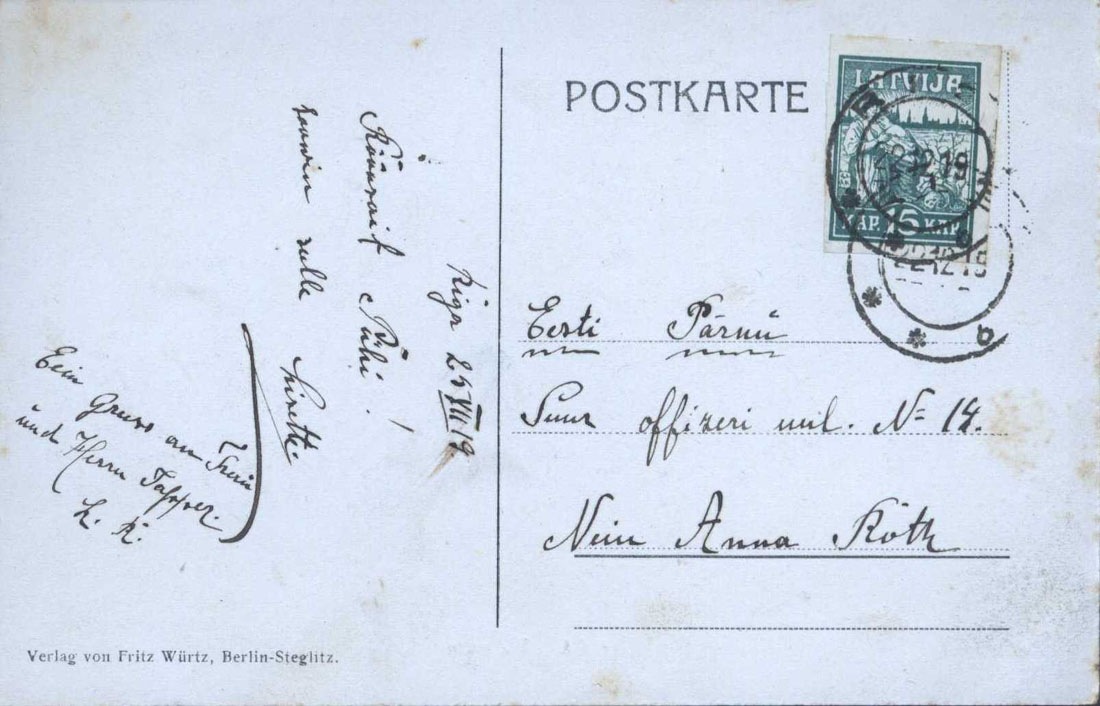 POSTKARTE
LATVIJA
15
KAP. KAP.
22 12 19
22 12 19
b
Riga 25 XII 19
Rõõmsaid Pühi!
soovin sulle
Lisette.
Ein Gruss an Frau
und Herrn
L. K.
Eesti Pärnu
Suur offizeri uul. N= 14.
Anna Köth
Verlag von Fritz Würtz, Berlin-Steglitz.